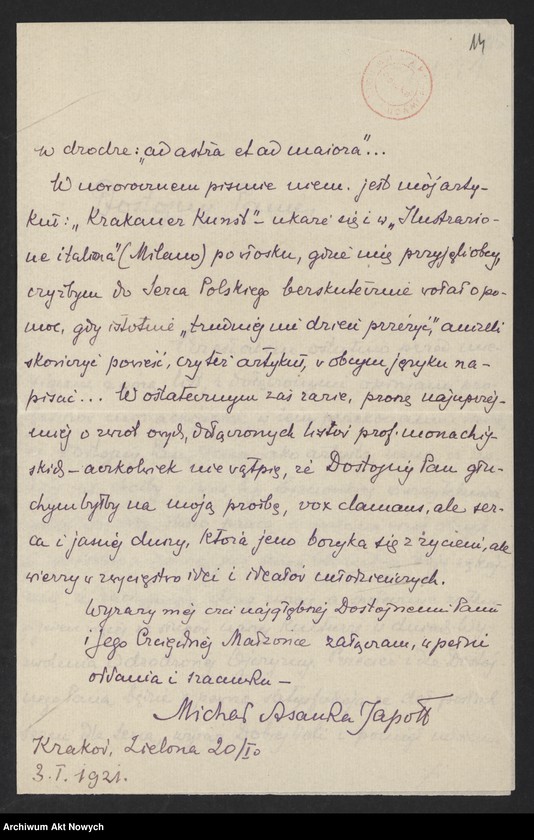 14
w drodze: „ad astra et ad maiora"...
W noworocznem piśmie niem. jest mój arty-
kuł: „Krakauer Kunst" – ukaże się i w „Ilustrazio-
ne italiana" (Milano) po włosku, gdzie mię przyjęli obcy,
czyżbym do Serca Polskiego bezskutecznie wołał o po-
moc, gdy istotnie „trudniej mi dzień przeżyć", aniżeli
skończyć powieść, czy też artykuł, w obcym języku na-
pisać... W ostatecznym zaś razie, proszę najuprzej-
miej o zwrot owych, dołączonych listów prof. monachij-
skich – aczkolwiek nie wątpię, że Dostojny Pan głu-
chym byłby na moją prośbę, vox clamans, ale ser-
ca i jasnej duszy, która jeno boryka się z życiem, ale
wierzy w zwycięstwo idei i ideałów młodzieńczych.
Wyrazy mej czci najgłębszej Dostojnemu Panu
i Jego Czcigodnej Małżonce załączam, w pełni
oddania i szacunku –
Michał Asanka Japołł
Kraków, Zielona 20/I p
3. I. 1921.
Archiwum Akt Nowych